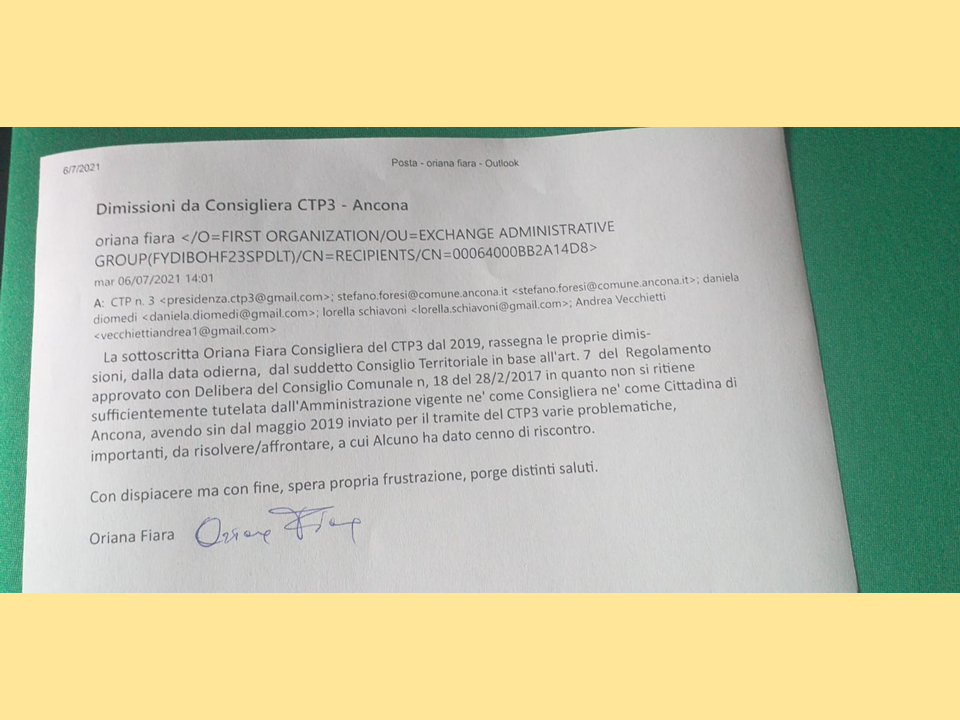 6/7/2021
Posta - oriana fiara - Outlook
Dimissioni da Consigliera CTP3 - Ancona
oriana fiara </O=FIRST ORGANIZATION/OU=EXCHANGE ADMINISTRATIVE
GROUP(FYDIBOHF23SPDLT)/CN=RECIPIENTS/CN=00064000BB2A14D8>
mar 06/07/2021 14:01
A: CTP n. 3 <presidenza.ctp3@gmail.com>; stefano.foresi@comune.ancona.it <stefano.foresi@comune.ancona.it>; daniela
diomedi <daniela.diomedi@gmail.com>; lorella schiavoni <lorella.schiavoni@gmail.com>; Andrea Vecchietti
<vecchiettiandrea1@gmail.com>
La sottoscritta Oriana Fiara Consigliera del CTP3 dal 2019, rassegna le proprie dimis-
sioni, dalla data odierna, dal suddetto Consiglio Territoriale in base all'art. 7 del Regolamento
approvato con Delibera del Consiglio Comunale n, 18 del 28/2/2017 in quanto non si ritiene
sufficientemente tutelata dall'Amministrazione vigente ne' come Consigliera ne' come Cittadina di
Ancona, avendo sin dal maggio 2019 inviato per il tramite del CTP3 varie problematiche,
importanti, da risolvere/affrontare, a cui Alcuno ha dato cenno di riscontro.
Con dispiacere ma con fine, spera propria frustrazione, porge distinti saluti.
Oriana Fiara Oriana Fiara